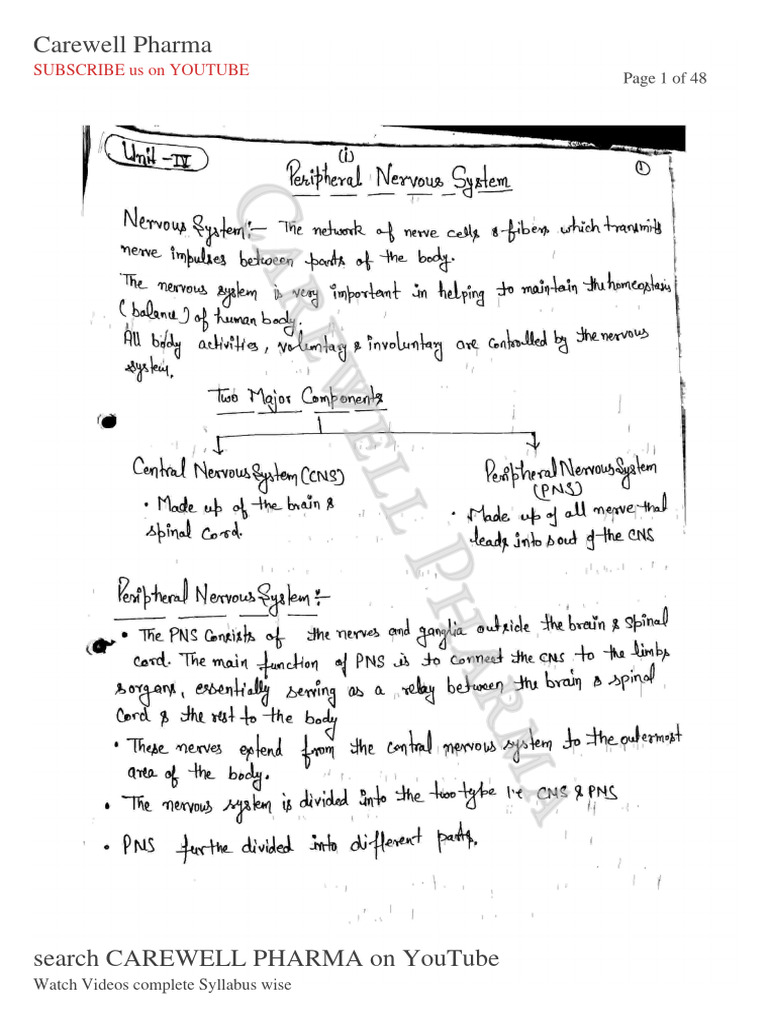 Carewell Pharma
SUBSCRIBE us on YOUTUBE
Page 1 of 48
Unit - IV
(i)
1
Peripheral Nervous System
Nervous System:- The network of nerve cells & fibers which transmits
nerve impulses between parts of the body.
The nervous system is very important in helping to maintain the homeostasis
(balance) of human body.
All body activities, voluntary & involuntary are controlled by the nervous
system.
Two Major Components
Central Nervous System (CNS)
• Made up of the brain &
spinal cord.
Peripheral Nervous System
(PNS)
• Made up of all nerve that
leads into & out of the CNS
Peripheral Nervous System:-
• The PNS consists of the nerves and ganglia outside the brain & spinal
cord. The main function of PNS is to connect the CNS to the limbs
& organs, essentially serving as a relay between the brain & spinal
cord & the rest to the body
• These nerves extend from the central nervous system to the outermost
area of the body.
• The nervous system is divided into the two type i.e CNS & PNS
• PNS furthe divided into different parts.
CAREWELL PHARMA
search CAREWELL PHARMA on YouTube
Watch Videos complete Syllabus wise